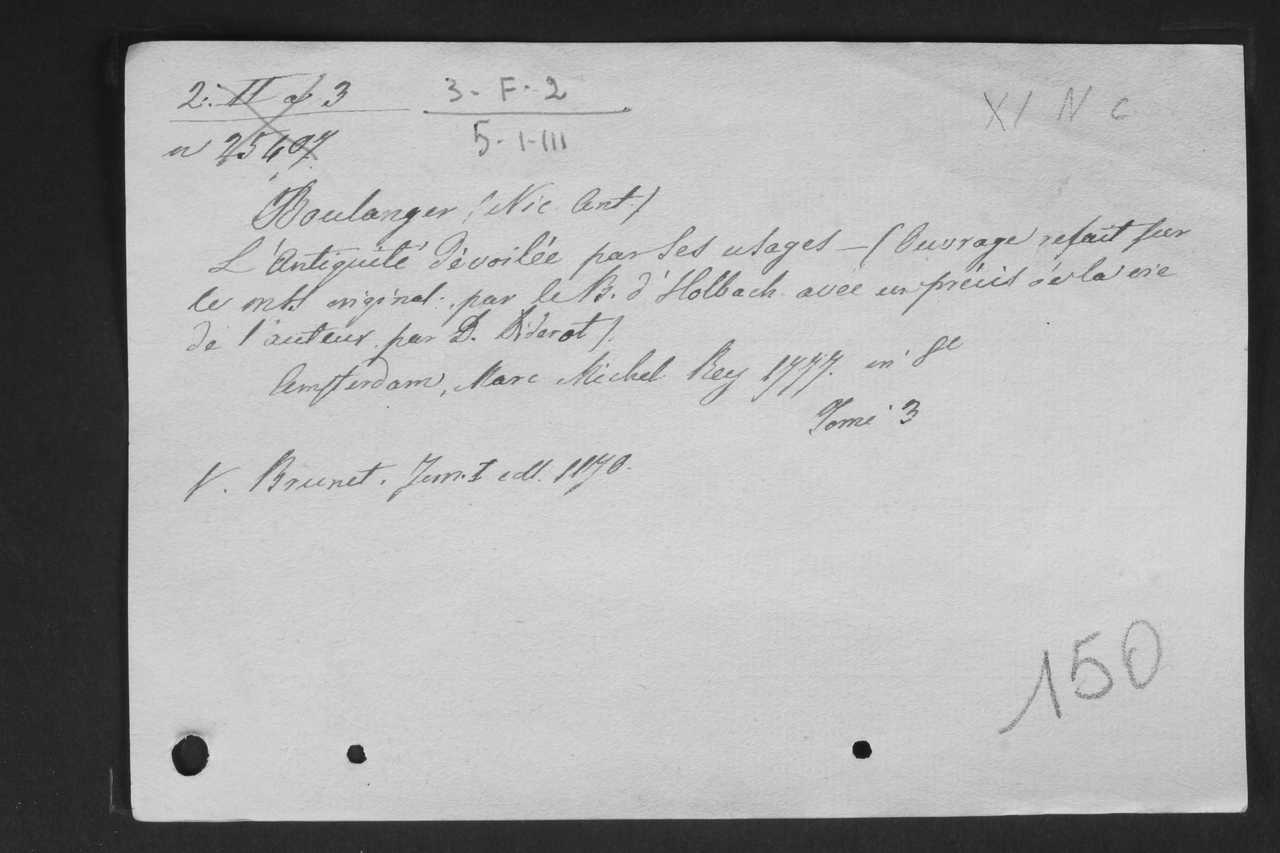 2. II of 3
3 - F - 2
XI N c
n 25407
5 - I - III
Boulanger (Nic. Ant.)
L'Antiquité dévoilée par ses usages — (Ouvrage refait sur
le mst original. par le B. d'Holbach avec un précis de la vie
de l'auteur par D. Diderot).
Amsterdam, Marc Michel Rey 1777. in 8e
Tome 3
V. Brunet. Tom. I edt. 1170.
150